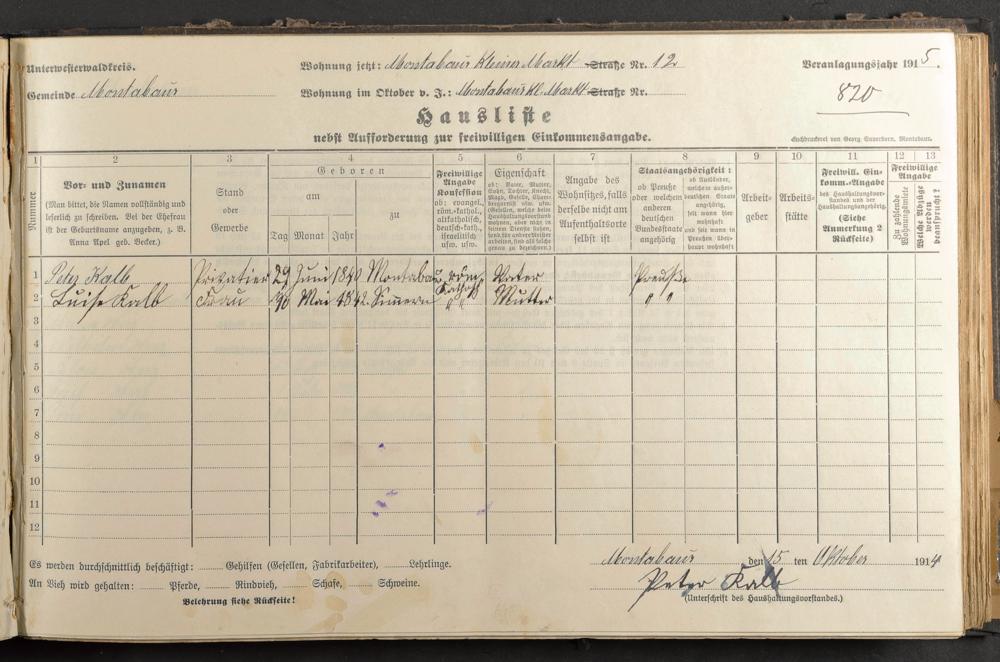 Unterwesterwaldkreis. Wohnung jetzt: Montabaur Kleiner Markt Straße Nr. 12 Veranlagungsjahr 1915.
Gemeinde Montabaur Wohnung im Oktober v. J.: Montabaur Kl. Markt Straße Nr. 820
Hausliste
nebst Aufforderung zur freiwilligen Einkommensangabe.
Buchdruckerei von Georg Sauerborn, Montabaur.
1 2 3 4 5 6 7 8 9 10 11 12 13
Nummer
Vor- und Zunamen
(Man bittet, die Namen vollständig und
leserlich zu schreiben. Bei der Ehefrau
ist der Geburtsname anzugeben, z. B.
Anna Apel geb. Becker.)
Stand
oder
Gewerbe
Geboren
am
zu
Tag Monat Jahr
Freiwillige
Angabe
Konfession
ob: evangel.,
röm.-kathol.,
altkatholisch,
deutsch-kath.,
israelitisch
usw. usw.
Eigenschaft
ob: Vater, Mutter,
Sohn, Tochter, Knecht,
Magd, Geselle,
Angabe des
Wohnsitzes, falls
derselbe nicht am
Aufenthaltsorte
selbst ist
Staatsangehörigkeit:
ob Preuße
oder welchem
anderen
deutschen
Bundesstaate
angehörig
ob Ausländer,
welchem außer-
deutschen Staate
angehörig,
seit wann hier
wohnhaft
und seit wann in
Preußen über-
haupt wohnhaft
Arbeit-
geber
Arbeits-
stätte
Freiwill. Ein-
komm.-Angabe
des Haushaltungsvor-
standes und der
Haushaltungsangehörig.
(Siehe
Anmerkung 2
Rückseite)
Freiwillige
Angabe
Zu zahlende
Wohnungsmiete
Welche Abzüge
werden
beansprucht?
1 Peter Kalb Privatier 29 Juni 1840 Montabaur röm. Kathol. Vater Preuße
2 Luise Kalb Frau Mai 1842 Simmern " " Mutter " "
3
4
5
6
7
8
9
10
11
12
Es werden durchschnittlich beschäftigt: Gehilfen (Gesellen, Fabrikarbeiter), Lehrlinge. Montabaur den 15 ten Oktober 1914
An Vieh wird gehalten: Pferde, Rindvieh, Schafe, Schweine. Peter Kalb
Belehrung siehe Rückseite! (Unterschrift des Haushaltungsvorstandes.)